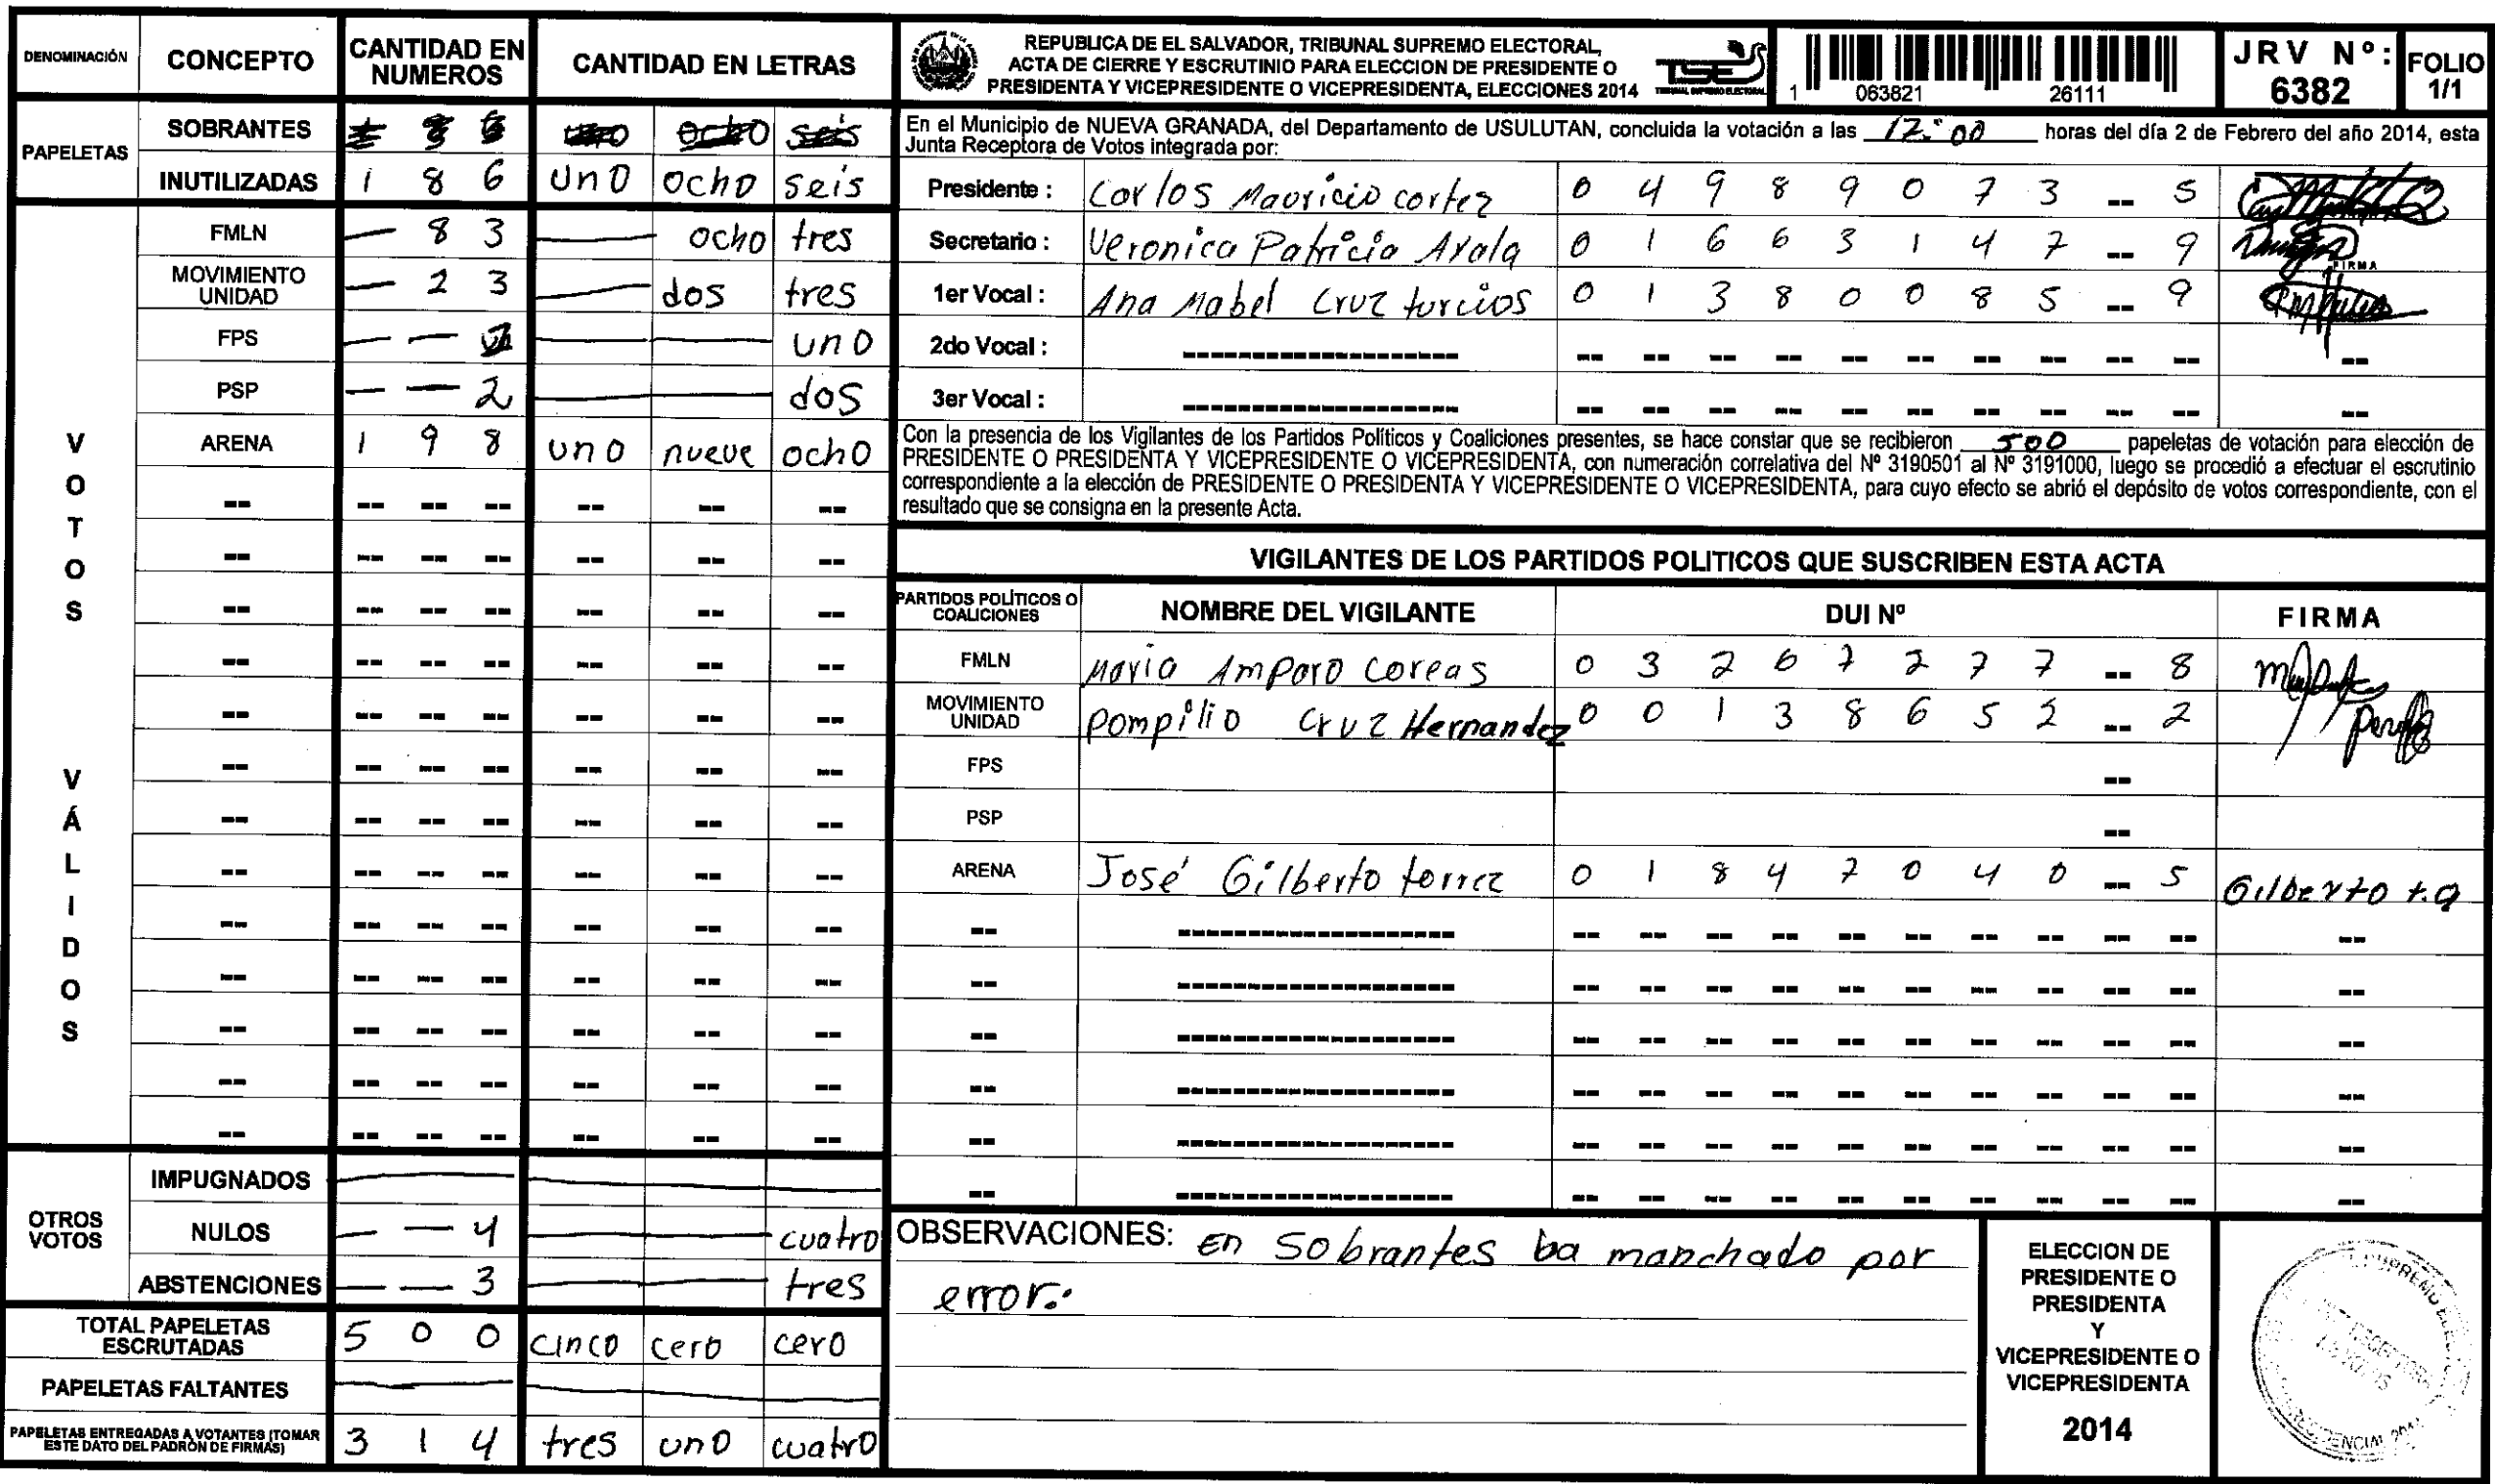 DENOMINACIÓN CONCEPTO CANTIDAD EN NUMEROS CANTIDAD EN LETRAS
PAPELETAS
SOBRANTES 1 8 6 uno ocho seis
INUTILIZADAS 1 8 6 uno ocho seis
VOTOS VÁLIDOS
FMLN — 8 3 — ocho tres
MOVIMIENTO UNIDAD — 2 3 — dos tres
FPS — — 1 — — uno
PSP — — 2 — — dos
ARENA 1 9 8 uno nueve ocho
OTROS VOTOS
IMPUGNADOS —
NULOS — — 4 — — cuatro
ABSTENCIONES — — 3 — — tres
TOTAL PAPELETAS ESCRUTADAS 5 0 0 cinco cero cero
PAPELETAS FALTANTES —
PAPELETAS ENTREGADAS A VOTANTES (TOMAR ESTE DATO DEL PADRÓN DE FIRMAS) 3 1 4 tres uno cuatro
REPUBLICA DE EL SALVADOR, TRIBUNAL SUPREMO ELECTORAL,
ACTA DE CIERRE Y ESCRUTINIO PARA ELECCION DE PRESIDENTE O
PRESIDENTA Y VICEPRESIDENTE O VICEPRESIDENTA, ELECCIONES 2014
TSE
TRIBUNAL SUPREMO ELECTORAL
1 063821 26111
JRV Nº: 6382
FOLIO 1/1
En el Municipio de NUEVA GRANADA, del Departamento de USULUTAN, concluida la votación a las 17:00 horas del día 2 de Febrero del año 2014, esta
Junta Receptora de Votos integrada por:
Presidente : Carlos Mauricio cortez 0 4 9 8 9 0 7 3 -- 5
Secretario : Veronica Patricia Ayala 0 1 6 6 3 1 4 7 -- 9
FIRMA
1er Vocal : Ana Mabel Cruz turcios 0 1 3 8 0 0 8 5 -- 9
2do Vocal :
3er Vocal :
Con la presencia de los Vigilantes de los Partidos Políticos y Coaliciones presentes, se hace constar que se recibieron 500 papeletas de votación para elección de
PRESIDENTE O PRESIDENTA Y VICEPRESIDENTE O VICEPRESIDENTA, con numeración correlativa del Nº 3190501 al Nº 3191000, luego se procedió a efectuar el escrutinio
correspondiente a la elección de PRESIDENTE O PRESIDENTA Y VICEPRESIDENTE O VICEPRESIDENTA, para cuyo efecto se abrió el depósito de votos correspondiente, con el
resultado que se consigna en la presente Acta.
VIGILANTES DE LOS PARTIDOS POLITICOS QUE SUSCRIBEN ESTA ACTA
PARTIDOS POLÍTICOS O COALICIONES NOMBRE DEL VIGILANTE DUI Nº FIRMA
FMLN Maria Amparo Coreas 0 3 2 6 7 2 7 7 -- 8
MOVIMIENTO UNIDAD Pompilio Cruz Hernandez 0 0 1 3 8 6 5 2 -- 2
FPS --
PSP --
ARENA José Gilberto torrez 0 1 8 4 7 0 4 0 -- 5 Gilberto t.a
OBSERVACIONES: En Sobrantes ba manchado por
error.
ELECCION DE
PRESIDENTE O
PRESIDENTA
Y
VICEPRESIDENTE O
VICEPRESIDENTA
2014